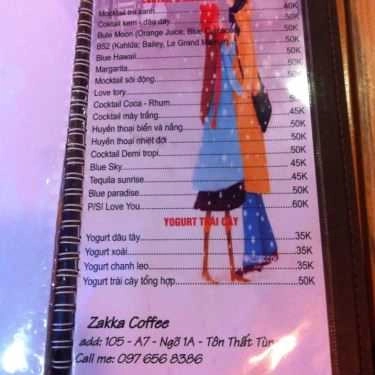 Mocktail trà xanh 40K
Coktail kem - dâu dây 50K
Bule Moon (Orange Juice, Blue 50K
B52 (Kahlda; Bailey, Le Grand 50K
Blue Hawaii 50K
Margarita 50K
Mocktail sôi động 50K
Love tory 50K
Cocktail Coca - Rhum 50K
Cocktail mây trắng 50K
Huyền thoại biển và nắng 50K
Huyền thoại nhiệt đới 50K
Cocktail Demi tropi 50K
Blue Sky 45K
Tequila sunrise 45K
Blue paradise 50K
P/S/ Love You 60K
YOGURT TRÁI CÂY
Yogurt dâu tây 35K
Yogurt xoài 35K
Yogurt chanh leo 35K
Yogurt trái cây tổng hợp 50K
Zakka Coffee
add: 105 - A7 - Ngõ 1A - Tôn Thất Tùng
Call me: 097 656 8386